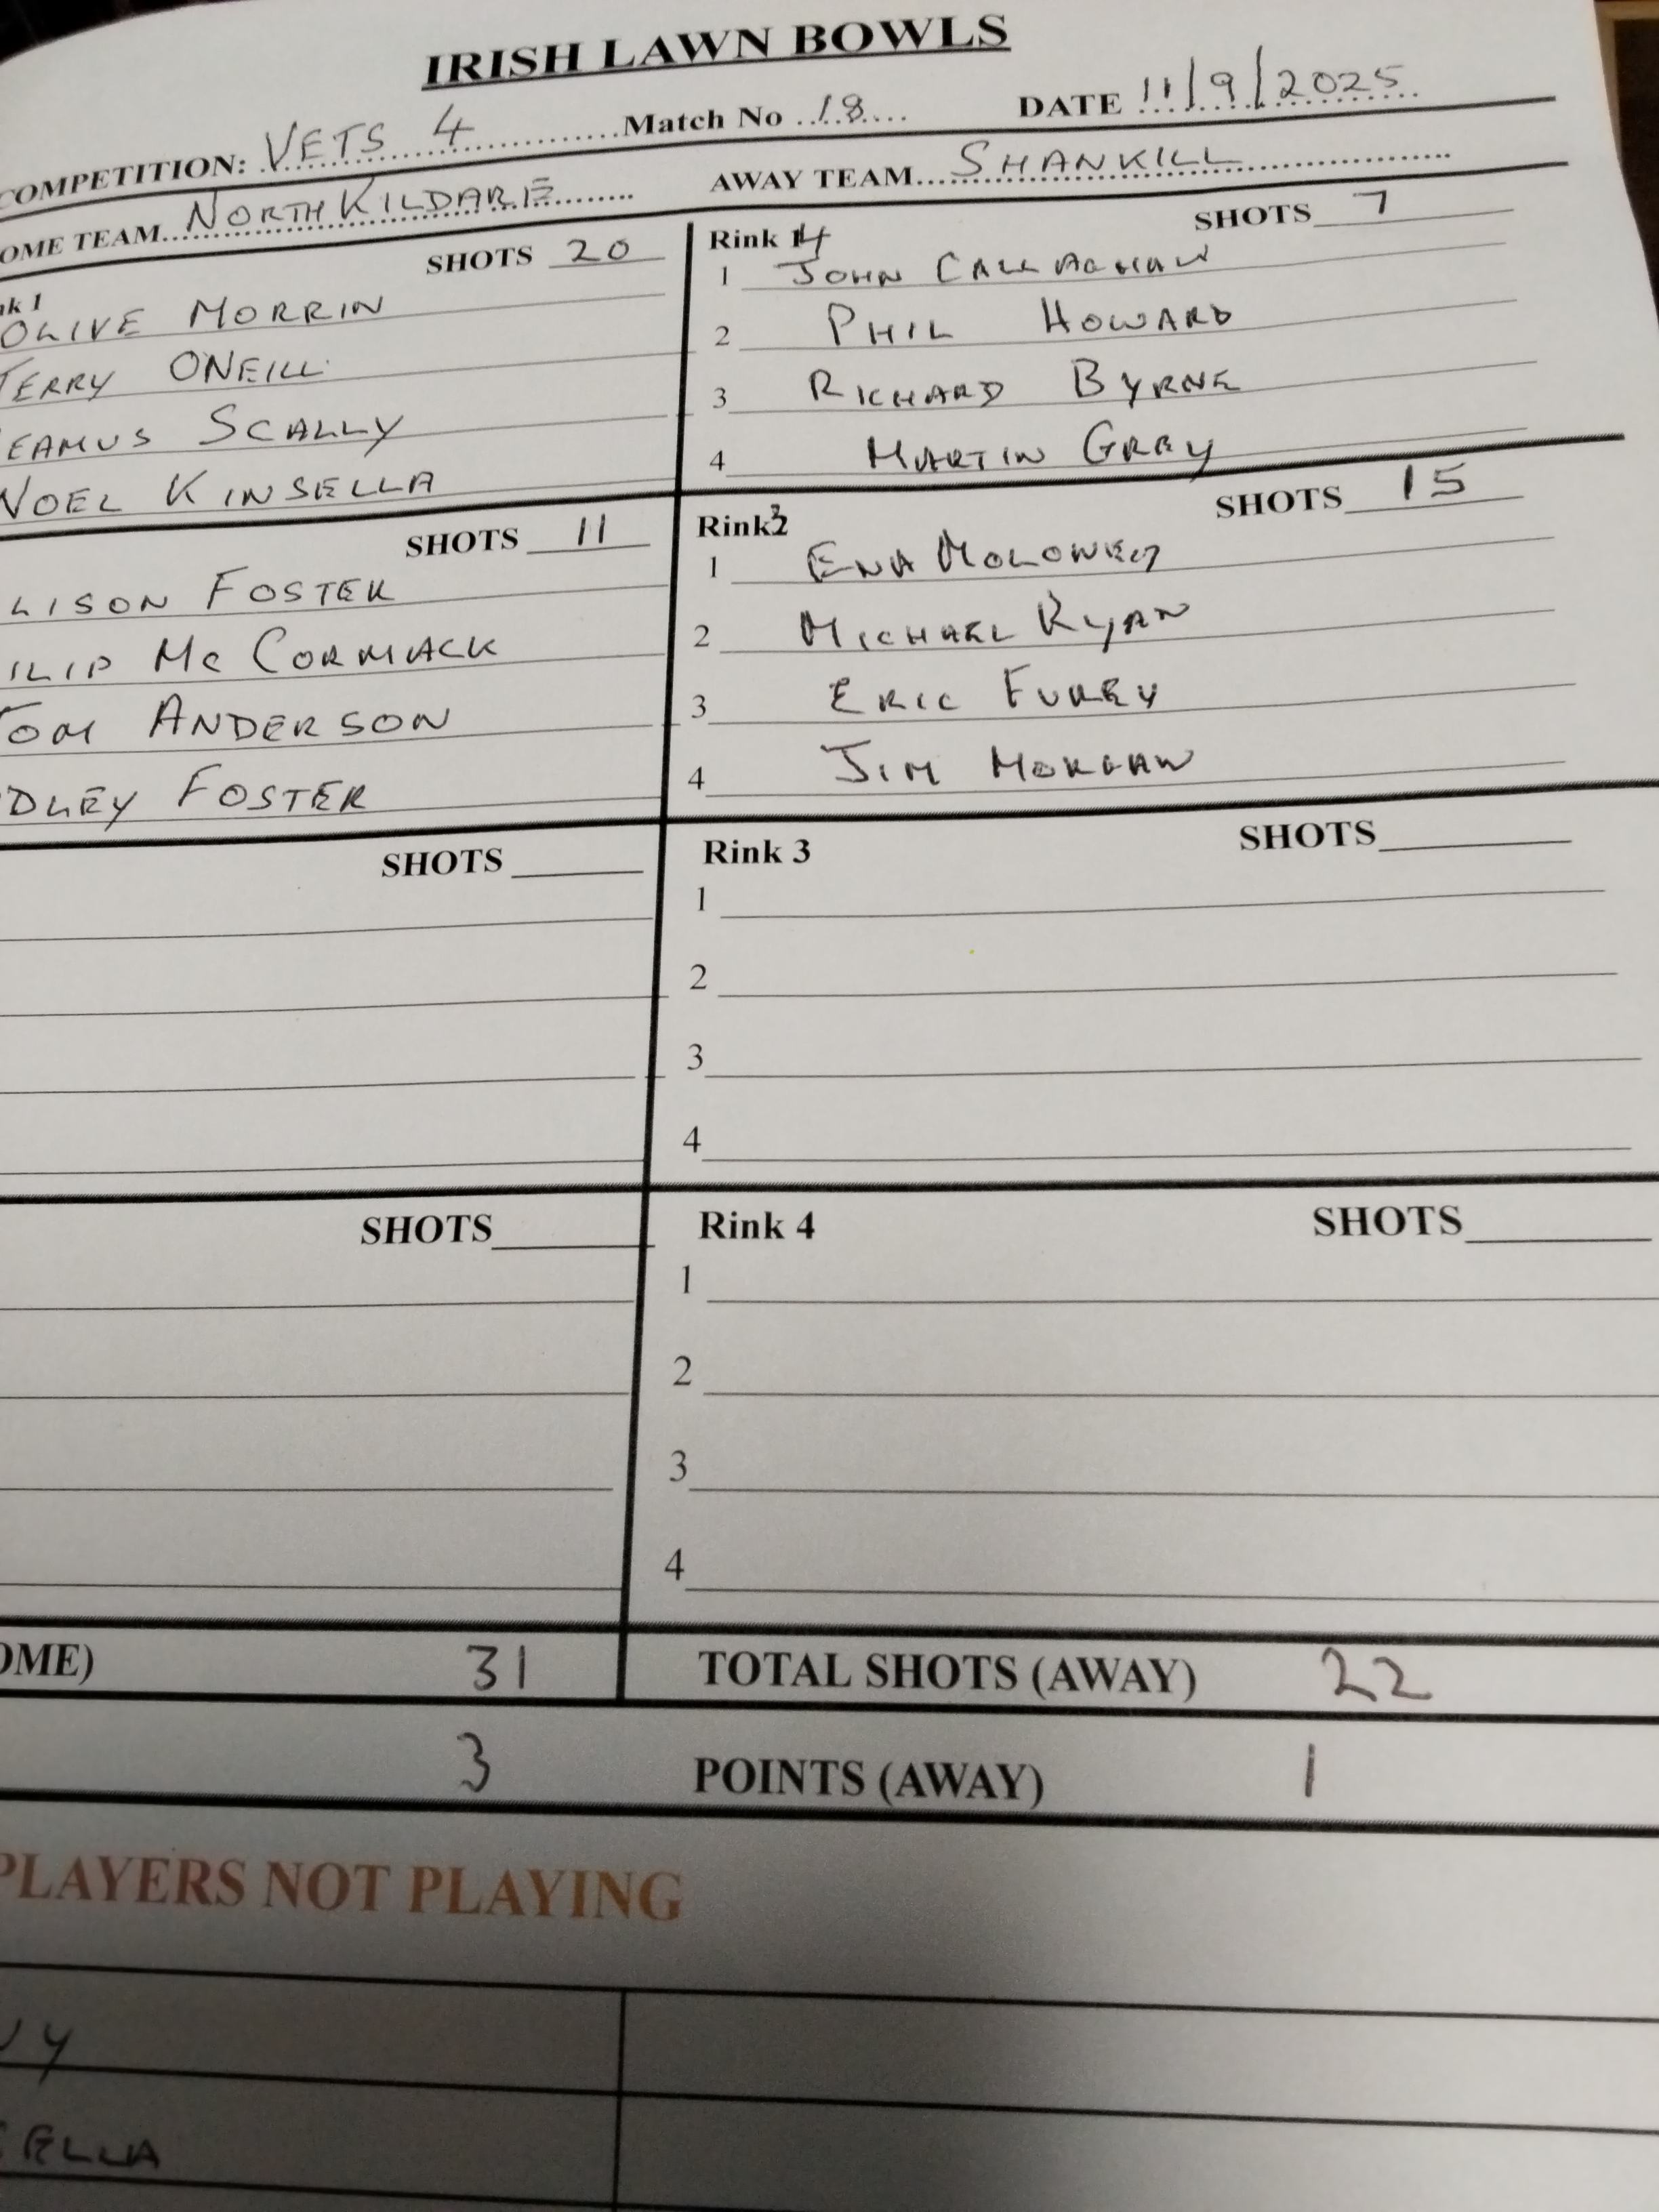 IRISH LAWN BOWLS
COMPETITION: VETS 4 Match No 18 DATE 11/9/2025
OME TEAM NORTH KILDARE AWAY TEAM SHANKILL
nk 1 SHOTS 20
OLIVE MORRIN
TERRY ONEILL
EAMUS SCALLY
NOEL KINSELLA
Rink 4 SHOTS 7
1 JOHN CALLAGHAN
2 PHIL HOWARD
3 RICHARD BYRNE
4 MARTIN GRAY
SHOTS 11
LISON FOSTER
ILIP Mc CORMACK
TOM ANDERSON
DLEY FOSTER
Rink 2 SHOTS 15
1 ENA MOLONEY
2 MICHAEL RYAN
3 ERIC FUREY
4 JIM MORGAN
SHOTS
Rink 3 SHOTS
1
2
3
4
SHOTS
Rink 4 SHOTS
1
2
3
4
OME) 31 TOTAL SHOTS (AWAY) 22
3 POINTS (AWAY) 1
PLAYERS NOT PLAYING
SELLA